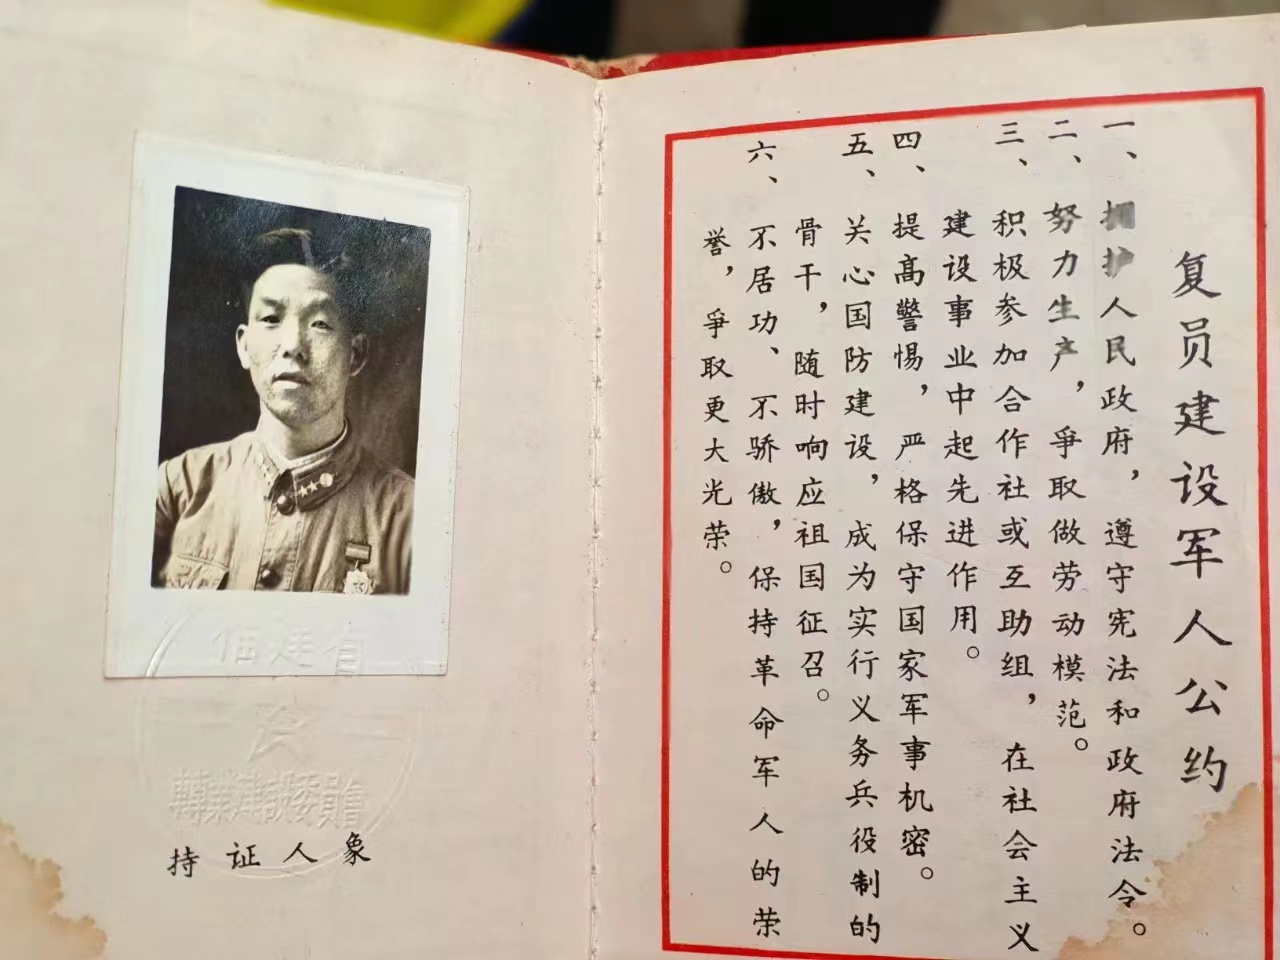 复员建设军人公约
一、拥护人民政府，遵守宪法和政府法令。
二、努力生产，爭取做劳动模范。
三、积极参加合作社或互助组，在社会主义
建设事业中起先进作用。
四、提高警惕，严格保守国家军事机密。
五、关心国防建设，成为实行义务兵役制的
骨干，随时响应祖国征召。
六、不居功、不骄傲，保持革命军人的荣
誉，爭取更大光荣。
福建省
轉業建設委員會
持证人象